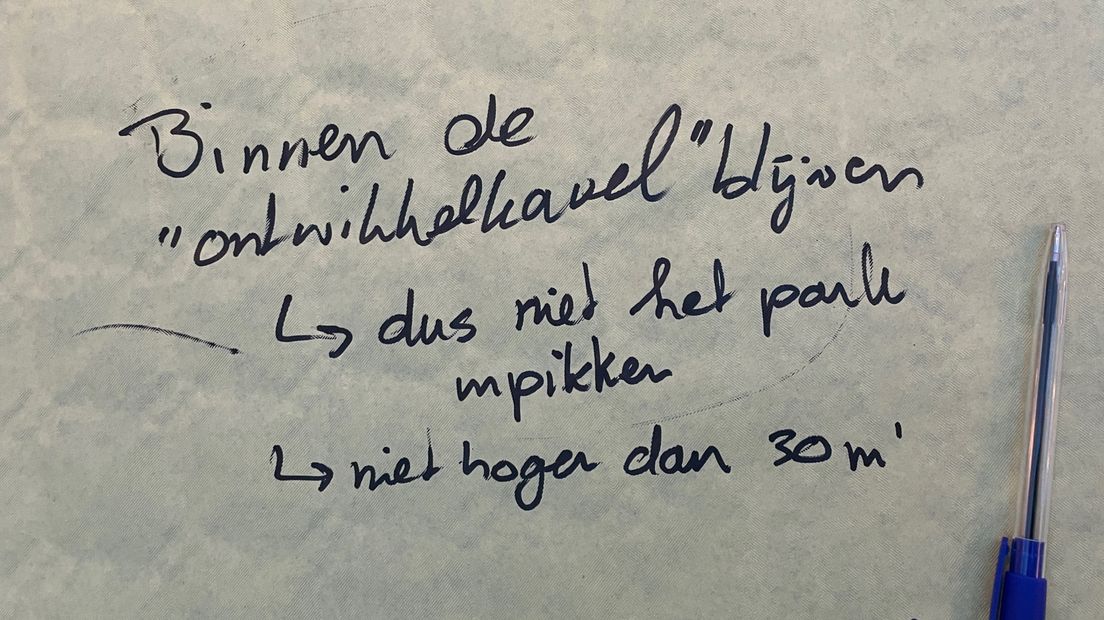 Binnen de
"ontwikkelkavel" blijven
↳ dus niet het park
inpikken
↳ niet hoger dan 30 m'